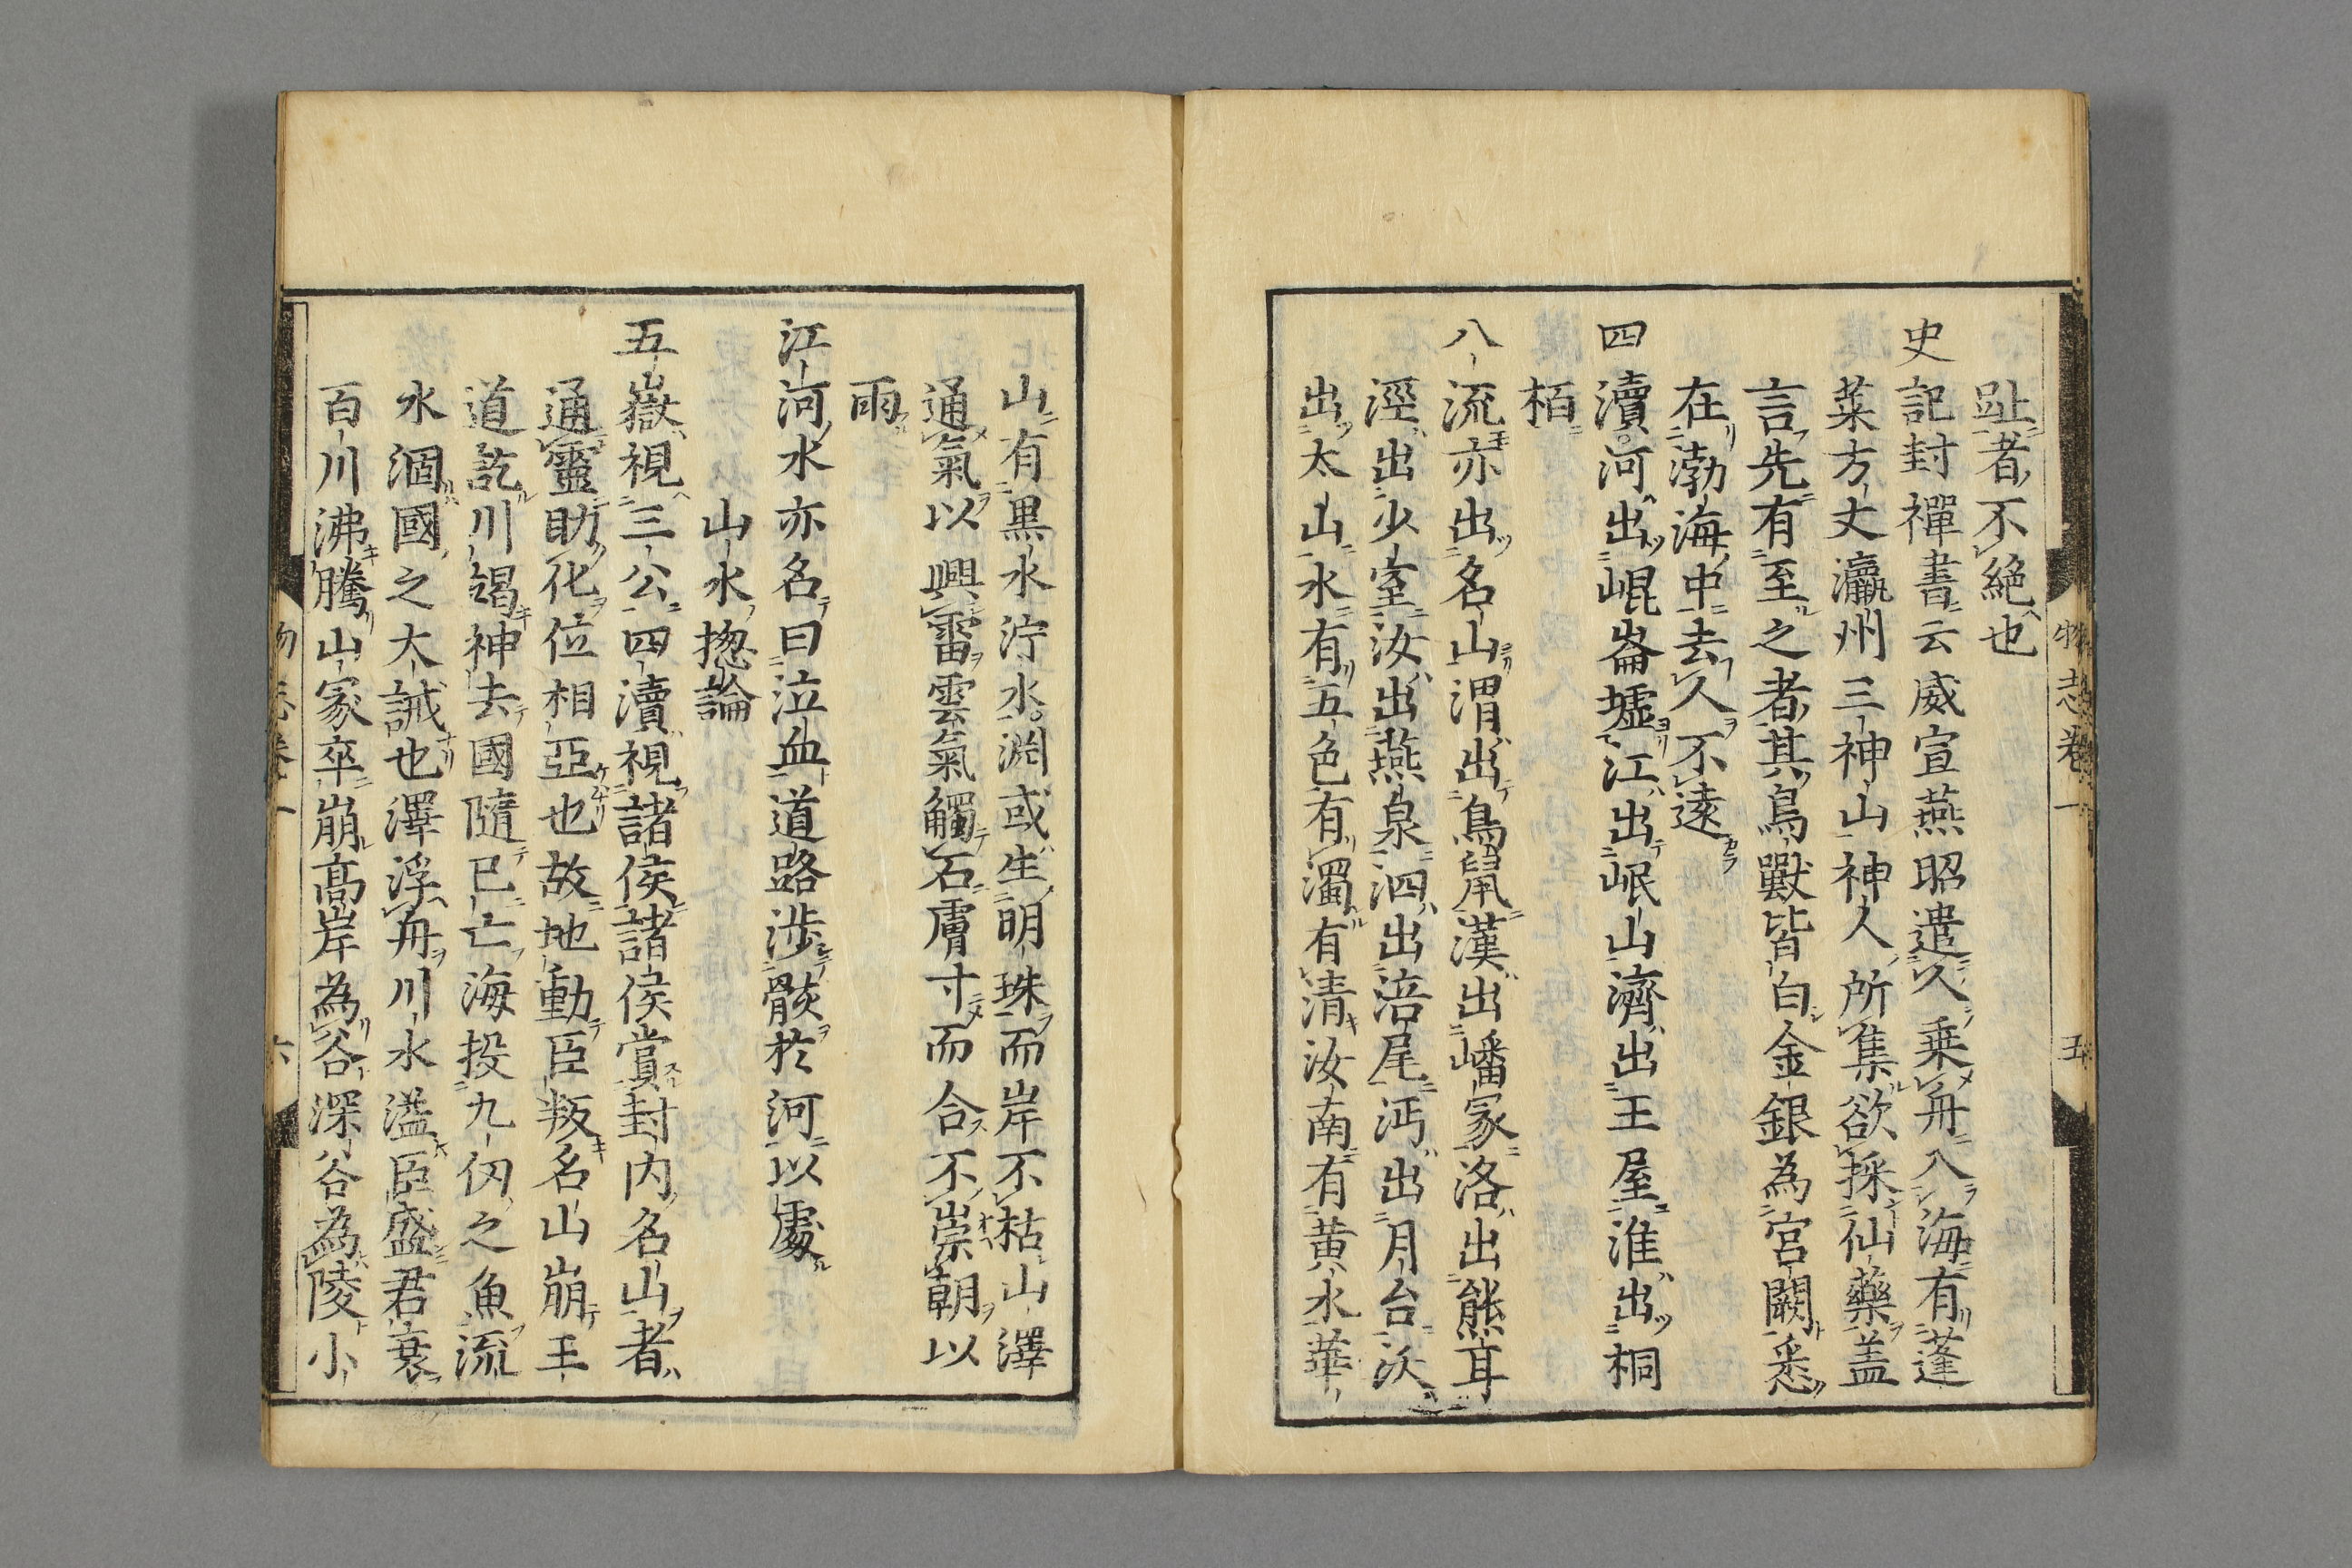 趾者不絶也
史記封禪書云威宣燕昭遣人乗舟入海有蓬
莱方丈瀛州三神山神人所集欲採仙藥盖
言先有至之者其鳥獸皆白金銀為宮闕悉
在渤海中去人不遠
四瀆河出崐崙墟江出岷山濟出王屋淮出桐
栢
八流亦出名山渭出鳥鼠漢出嶓冢洛出熊耳
涇出少室汝出燕泉泗出涪尾沔出月台沃
出太山水有五色有濁有清汝南有黄水華
物志卷一
五
山有黒水泞水淵或生明珠而岸不枯山澤
通氣以興雷雲氣觸石膚寸而合不崇朝以
雨
江河水亦名曰泣血道路渉骸於河以處
山水揔論
五嶽視三公四瀆視諸侯諸侯賞封内名山者
通靈助化位相亞也故地動臣叛名山崩王
道訖川竭神去國隨已亡海投九仭之魚流
水涸國之大誡也澤浮舟川水溢臣盛君衰
百川沸騰山冢卒崩髙岸為谷深谷為陵小
六